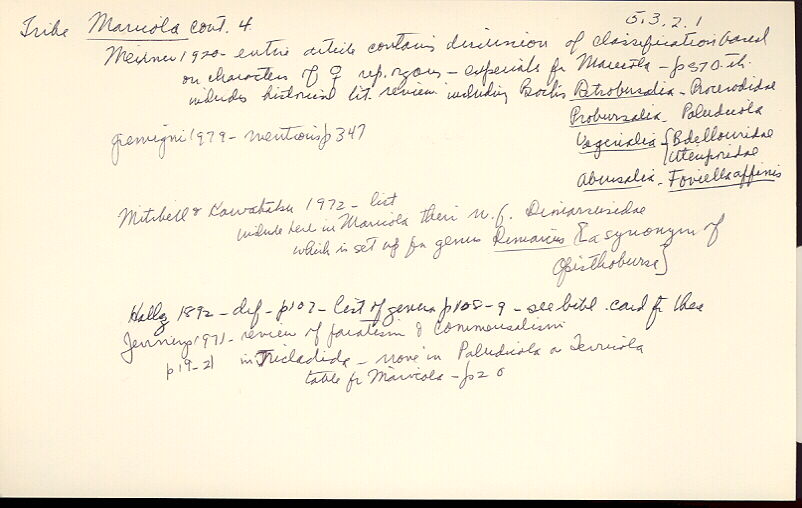 Tribe Maricola cont. 4.
5.3.2.1
Meixner 1920 - entire article contains discussion of classification based
on characters of ♀ rep. organs - especially for Maricola - p370 ff.
includes historical lit. review including Bock's Retrobursalia - Procerodidae
Probursalia - Paludicola
Vaginalia - { Bdellouridae
Uteriporidae
Abursalia - Foviella affinis
Gremigni 1979 - mentions p347
Mitchell & Kawakatsu 1972 - list
include here in Maricola their n.f. Dimarcusidae
which is set up for genus Dimarcus [a synonym of
Opisthobursa]
Hallez 1892 - def - p107 - list of genera p108-9 - see bibl. card for these
Jennings 1971 - review of parasitism & commensalism
p19-21 in Tricladida - none in Paludicola or Terricola
table for Maricola - p20